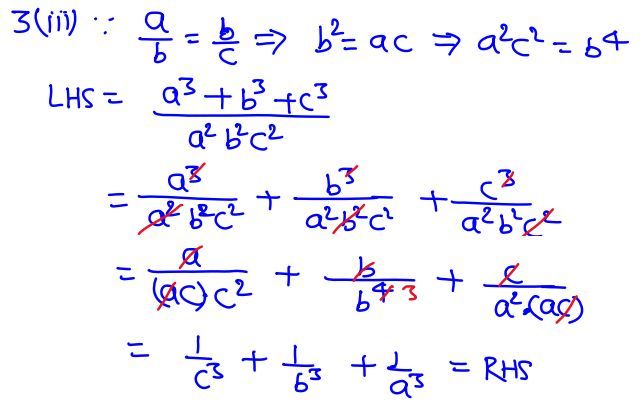 3(iii) ∵ a/b = b/c ⇒ b² = ac ⇒ a²c² = b⁴
LHS = (a³ + b³ + c³)/(a² b² c²)
= a³/(a² b² c²) + b³/(a² b² c²) + c³/(a² b² c²)
= a/((ac)·c²) + b/b⁴ ³ + c/(a²·(ac))
= 1/c³ + 1/b³ + 1/a³ = RHS